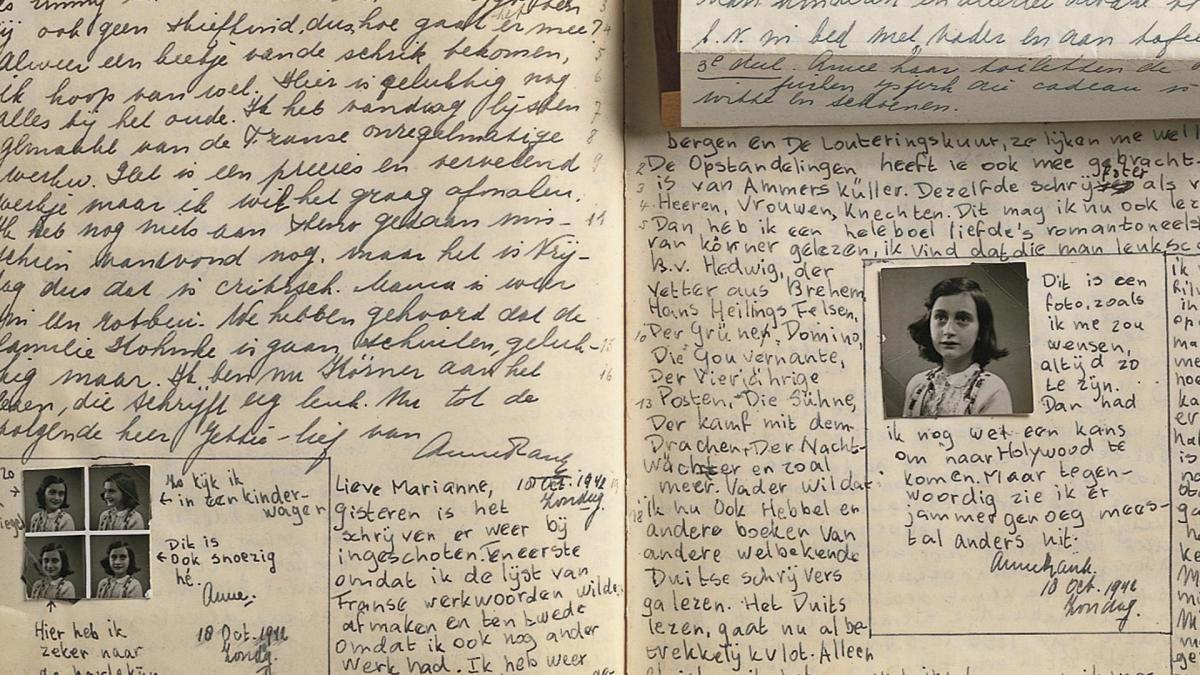 ij ook geen stiefkind, dus hoe gaat het er mee? 4
Alweer een beetje van de schrik bekomen, 5
ik hoop van wel. Hier is gelukkig nog 6
alles bij het oude. Ik heb vandaag lijsten 7
gemaakt van de Franse onregelmatige 8
werkw. Het is een precies en vervelend 9
werkje maar ik wil het graag afmaken.
Ik heb nog niets aan Steno gedaan mis- 11
schien vanavond nog, maar het is Vrij-
dag dus dat is critisch. Mama is weer
We hebben gehoord dat de
familie Hohnke is gaan schuilen, geluk- 15
kig maar. Ik ben nu Körner aan het 16
lezen, die schrijft erg leuk. Nu tot de
volgende keer Jettie-lief van
Anne Frank
Zo kijk ik
in een kinder-
wagen
Dit is
ook snoezig
hé.
Anne.
Hier heb ik
zeker naar
18 Oct. 1942
Zondag.
Lieve Marianne, 18 Oct. 1942
Zondag.
gisteren is het
schrijven er weer bij
ingeschoten. Ten eerste
omdat ik de lijst van
Franse werkwoorden wilde
afmaken en ten tweede
omdat ik ook nog ander
werk had. Ik heb weer
b.v. in bed met Vader en aan tafel
3e deel. Anne haar toiletten de
witte en schoenen.
bergen en De Louteringskuur, ze lijken me wel
2 De Opstandelingen heeft ie ook mee gebracht
3 is van Ammers Küller. Dezelfde schrijfster als v
4 Heeren, Vrouwen, Knechten. Dit mag ik nu ook lez
5 Dan heb ik een heleboel liefde's romantoneels
van körner gelezen, ik vind dat die man leuk sch
B.v. Hedwig, der
Vetter aus Brehem
Hans Heilings Felsen,
10 Der Grünen Domino,
Die Gouvernante,
Der Vierjährige
13 Posten, Die Sühne,
Der kamf mit dem
Drachen, Der Nacht-
wächter en zoal
meer. Vader wil dat
18 ik nu ook Hebbel en
andere boeken van
andere welbekende
Duitse schrijvers
ga lezen. Het Duits
lezen, gaat nu al be-
trekkelijk vlot. Alleen
Dit is een
foto, zoals
ik me zou
wensen,
altijd zo
te zijn.
Dan had
ik nog wel een kans
om naar Holywood te
komen. Maar tegen-
woordig zie ik er
jammer genoeg mees-
tal anders uit.
Anne Frank.
18 Oct. 1942
Zondag.